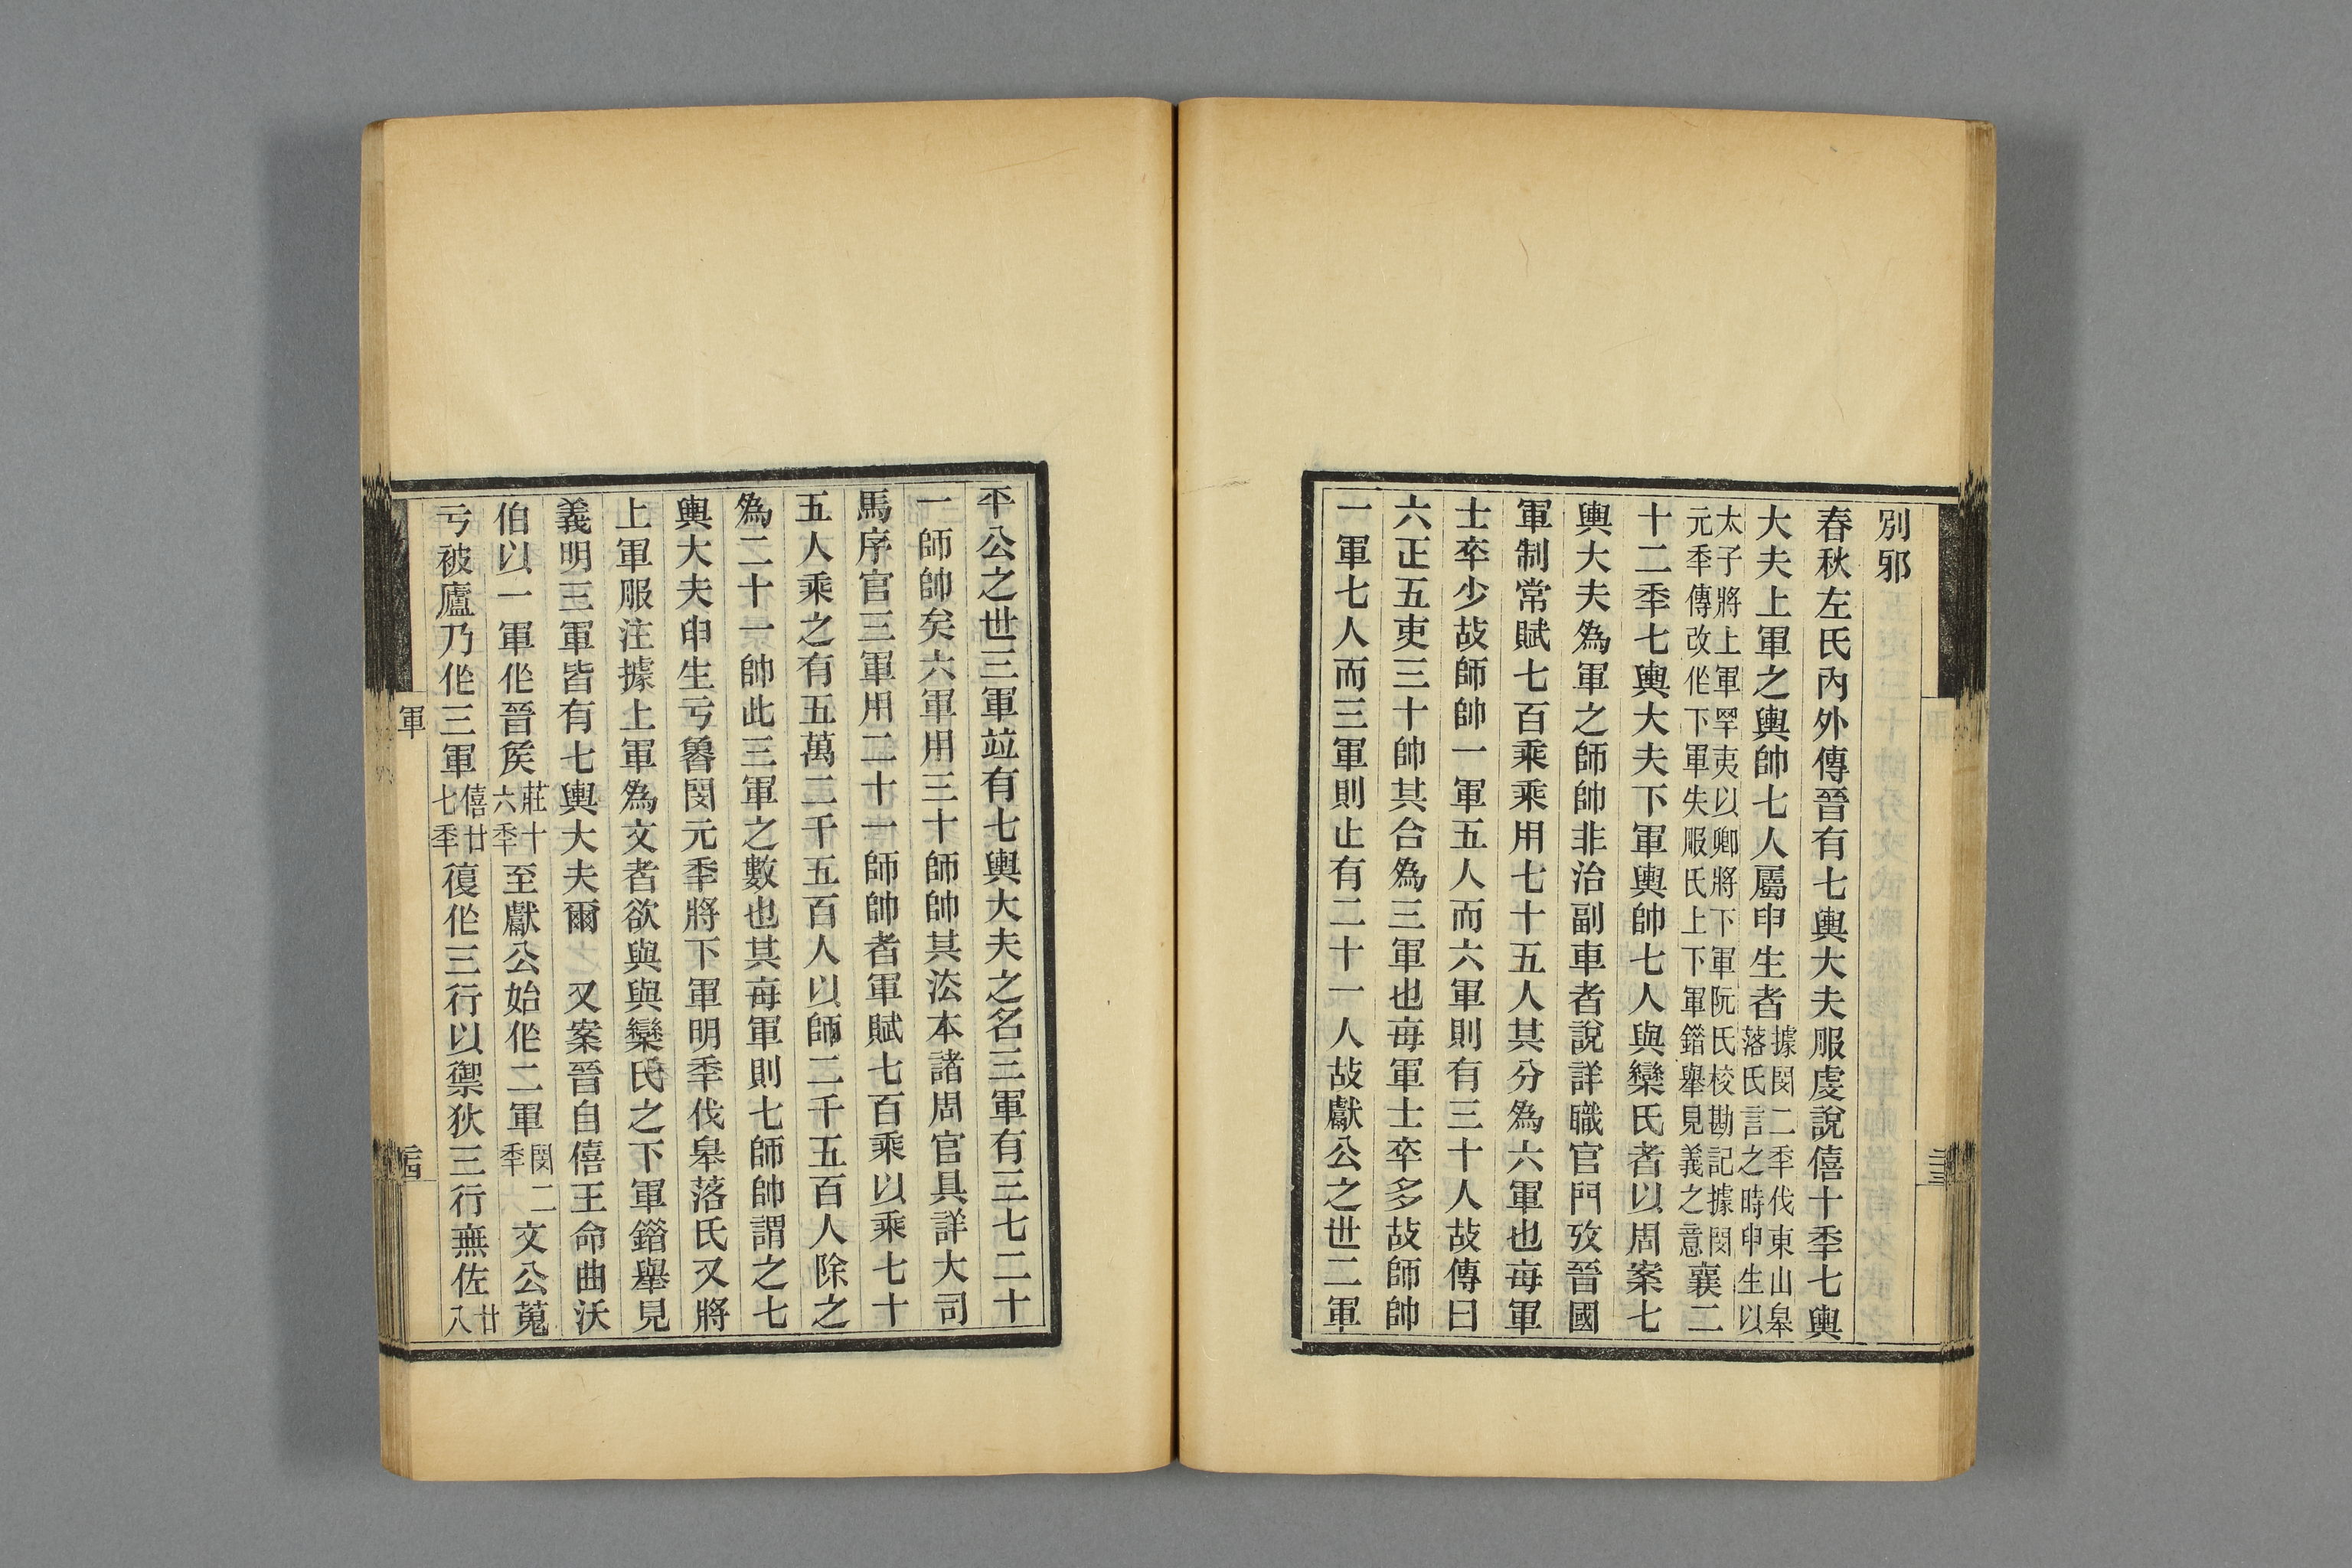 別邪
春秋左氏內外傳晉有七輿大夫服虔說僖十秊七輿
大夫上軍之輿帥七人屬申生者據閔二秊伐東山皋落氏言之時申生以
太子將上軍罕夷以卿將下軍阮氏校勘記據閔元秊傳改作下軍失服氏上下軍錯舉見義之意襄二
十二秊七輿大夫下軍輿帥七人與欒氏者以周案七
輿大夫為軍之師帥非治副車者說詳職官門攷晉國
軍制常賦七百乘乘用七十五人其分為六軍也每軍
士卒少故師帥一軍五人而六軍則有三十人故傳曰
六正五吏三十帥其合為三軍也每軍士卒多故師帥
一軍七人而三軍則止有二十一人故獻公之世二軍
平公之世三軍竝有七輿大夫之名三軍有三七二十
一師帥矣六軍用三十師帥其法本諸周官具詳大司
馬序官三軍用二十一師帥者軍賦七百乘以乘七十
五人乘之有五萬二千五百人以師二千五百人除之
為二十一帥此三軍之數也其每軍則七師帥謂之七
輿大夫申生亏魯閔元秊將下軍明秊伐皋落氏又將
上軍服注據上軍為文者欲與與欒氏之下軍錯舉見
義明三軍皆有七輿大夫爾　又案晉自僖王命曲沃
伯以一軍作晉矦莊十六秊至獻公始作二軍閔二秊文公蒐
亏被廬乃作三軍僖廿七秊復作三行以禦狄三行無佐廿八
軍